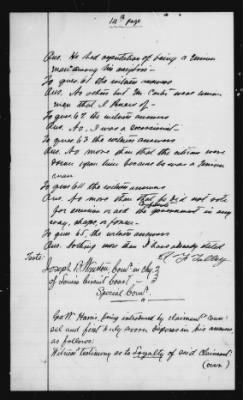 14th page
Ans. He had reputation of being a Union
man among his neighbors -
To ques. 61 the witness answers
Ans. No other but the Confed were Union
men that I know of -
To ques 62 the witness answers
Ans. No, I was a
To ques 63 the witness answers
Ans. No more than that the citizens were
down upon him because he was a Union
man
To ques 64 the witness answers
Ans. No more than that he did not vote
for secession or aid the government in any
way, shape, or form -
To ques 65, the witness answers
Ans. Nothing more than I have already stated
Teste:
Joseph D. Newton, Comr in chy
of Louisa Circuit Court -
Special Comr.
Geo W. Harris, being introduced by claimant's coun-
sel and first duly sworn deposes in his answers
as follows:
Witness' testimony as to Loyalty of said Claimant:
(over)